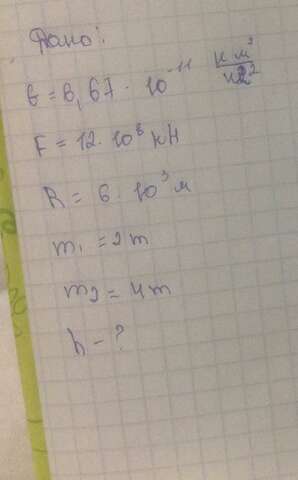 Дано:
G = 6,67 · 10⁻¹¹ н м² / кг²
F = 12 · 10⁶ кН
R = 6 · 10³ м
m₁ = 2 т
m₂ = 4 т
h - ?